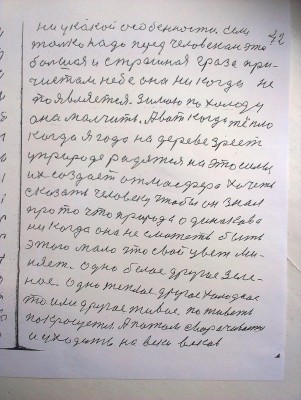 42
ни укакой особенности. Сели
только надо пред человеком это
большая и страшная граза при
чистом небе она никогда не
появляется. Зимою по холоду
она молчить. А вот когда тёпло
когда ягода на дереве зреет
у природе радятся на это силы
их создает атмасфера. Хочеть
сказать человеку чтобы он знал
про то что природа одинакова
никогда она не сможеть быть
этого мало это свой цвет ме-
няеть. Одно белое другое зеле-
ное. Одно теплое другое холодное
то или другое живое поживеть
покросуеть. А потом сварачиваеть
и уходить на веки веков